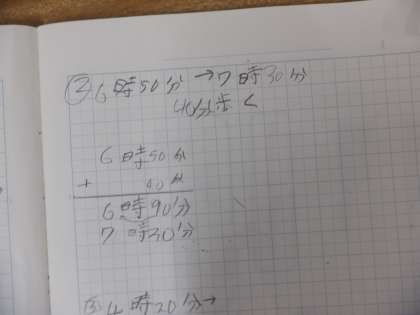 ② 6時50分→7時30分
40分歩く
6時50分
+ 40分
6時90分
7時30分
③ 4時20分→